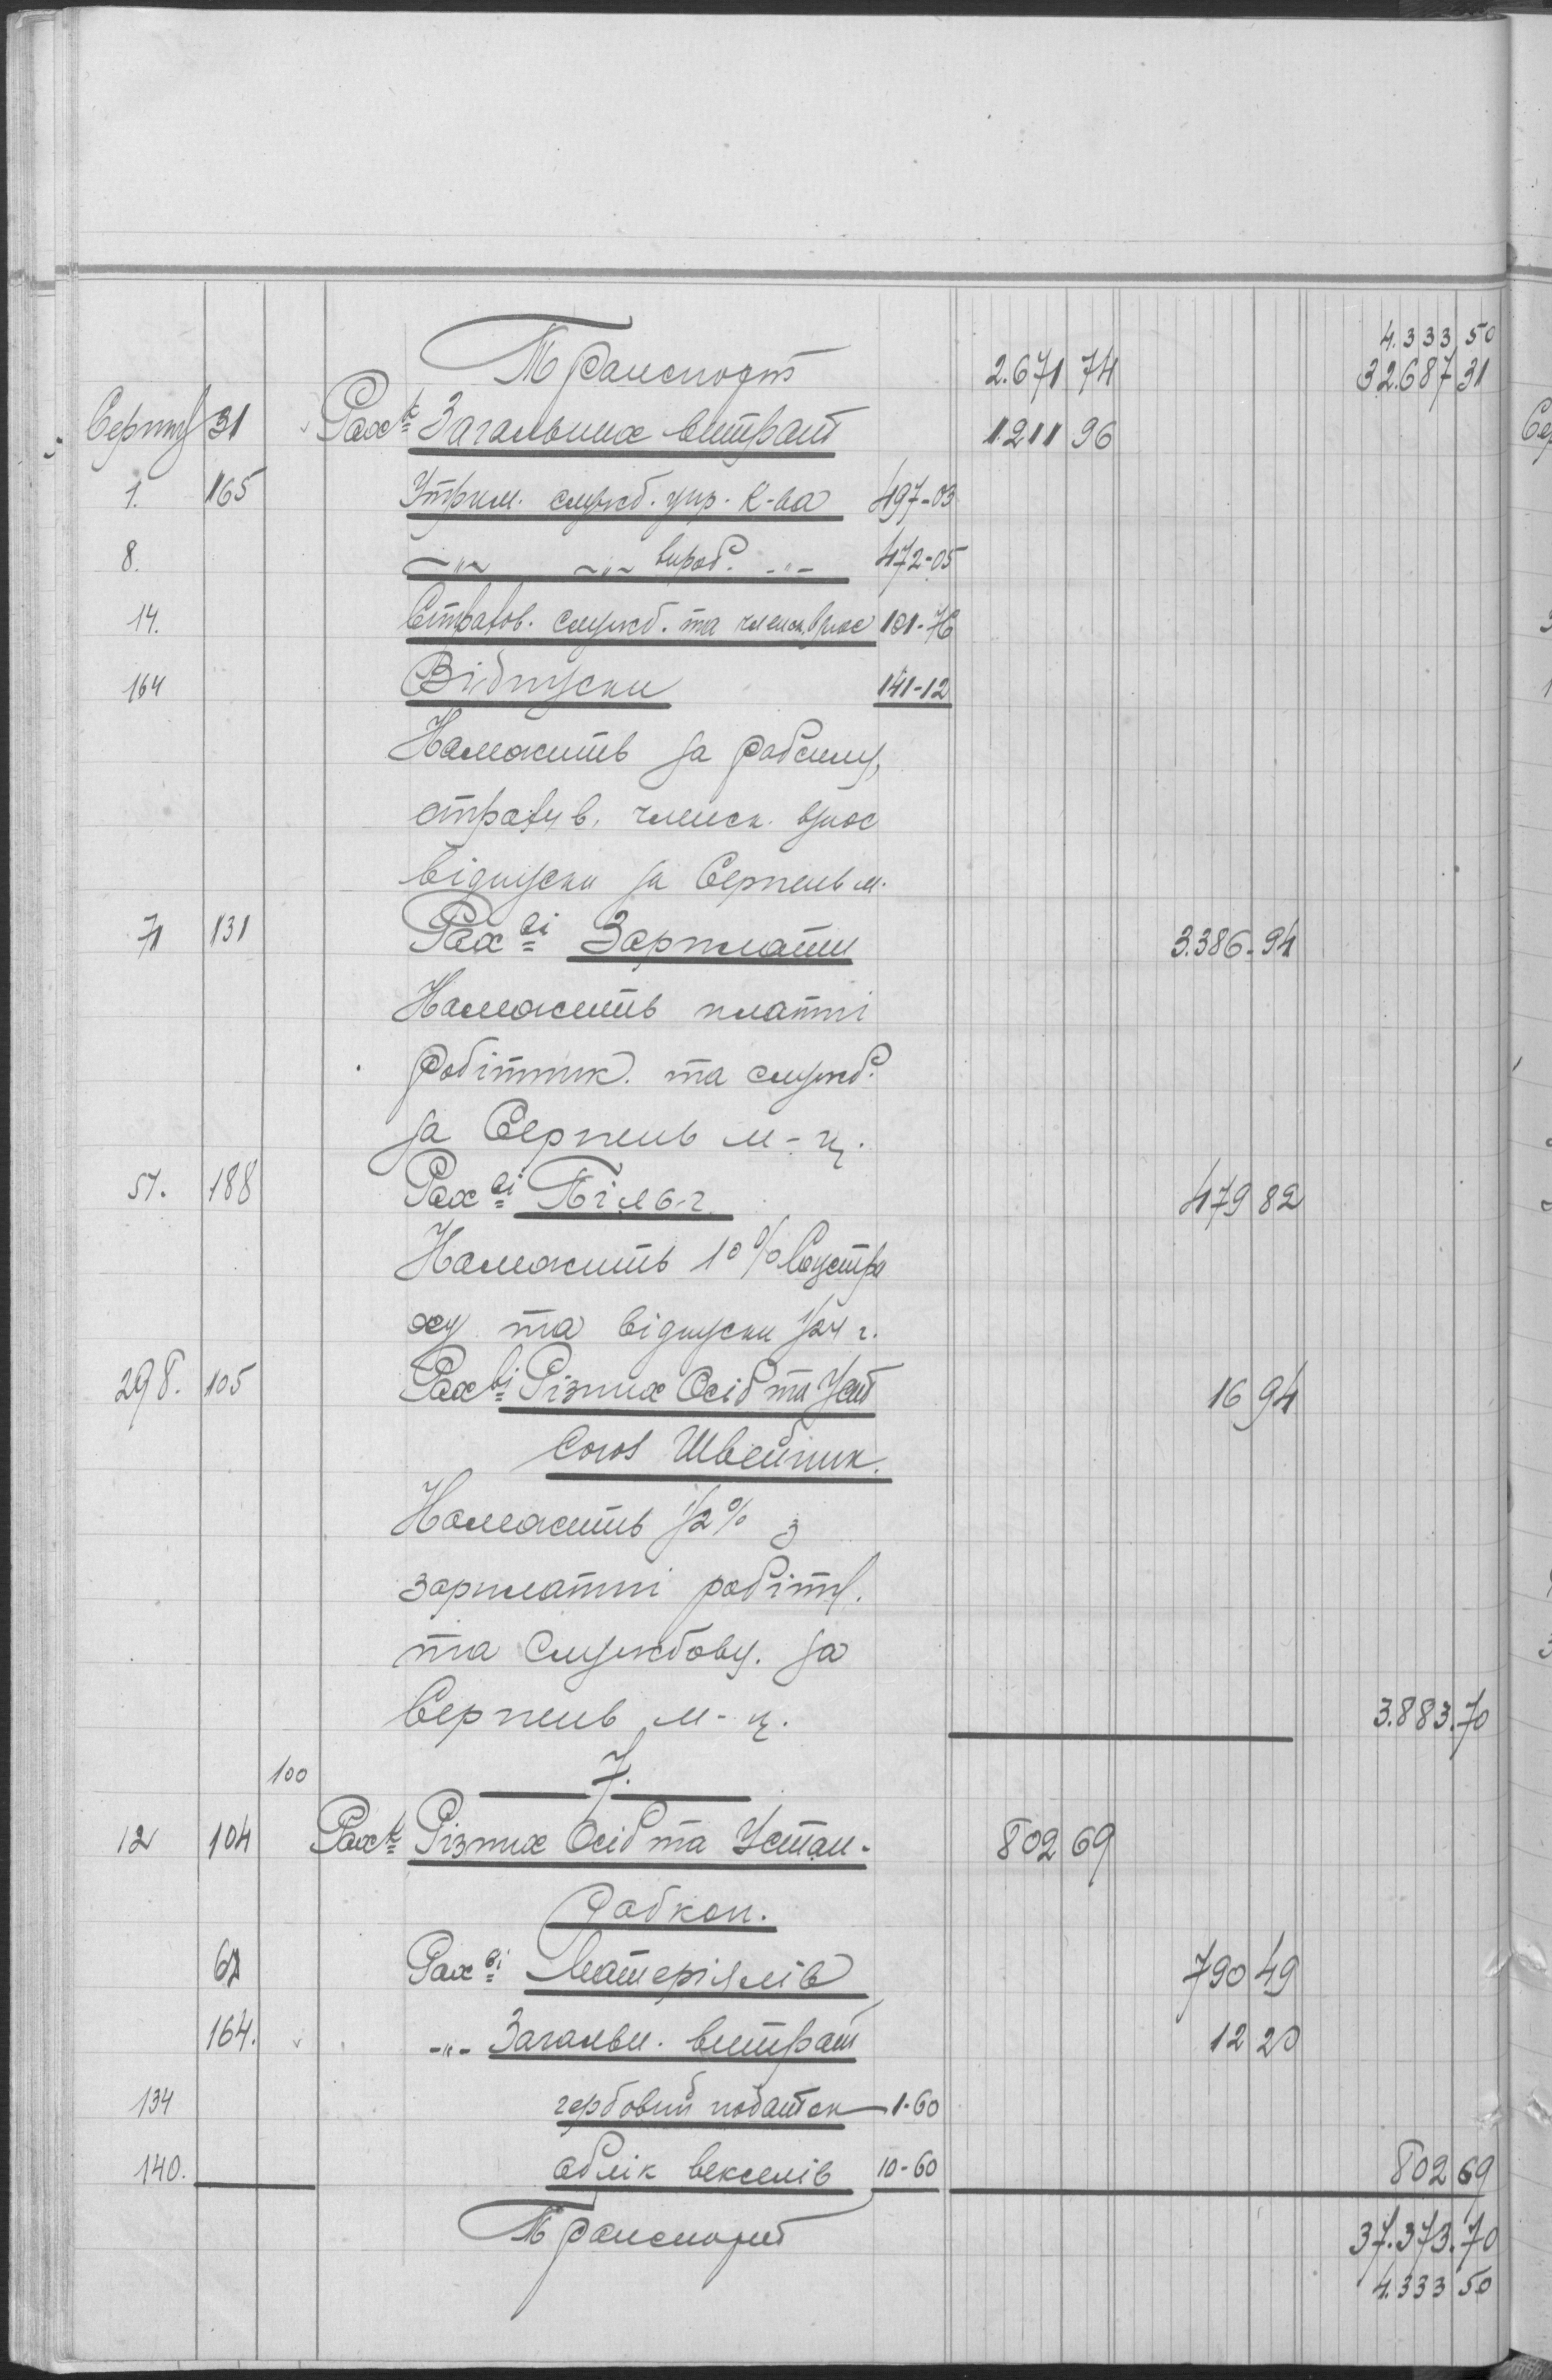 4.333 50
Транспорт 2.671 74 32.687 31
Серпня 31 Рах-к Загальних витрат 1211 96
1. 165 Утрим. служб. упр. К-ва 497-03
8. -"- -"- вироб. -"- 472-05
14. Страхов. служб. та членск. внос 101-76
164 Відпуски 141-12
Належить за робсилу,
страхув. членск. внос
відпуски за Серпень м.
71 131 Рах-ві Зарплати 3.386.94
Належить платні
робітник. та служб.
за Серпень м-ц.
51. 188 Рах-ві Пільг 479 82
Належить 10% Соцстра
ху та відпуски 1/24 г.
298. 105 Рах-ві Різних Осіб та Уст 16 94
Союз Швейник.
Належить 1/2% з
зарплатні робітн.
та Службову. за
Серпень м-ц. 3.883.70
100 7.
12 104 Рах-к Різних Осіб та Устан. 802 69
Робкоп.
67 Рах-ві Матеріялів 790 49
164. -"- Загальн. витрат 12 20
134 гербовий податок 1-60
140. облік векселів 10-60 802 69
Транспорт 37.373.70
4.333 50